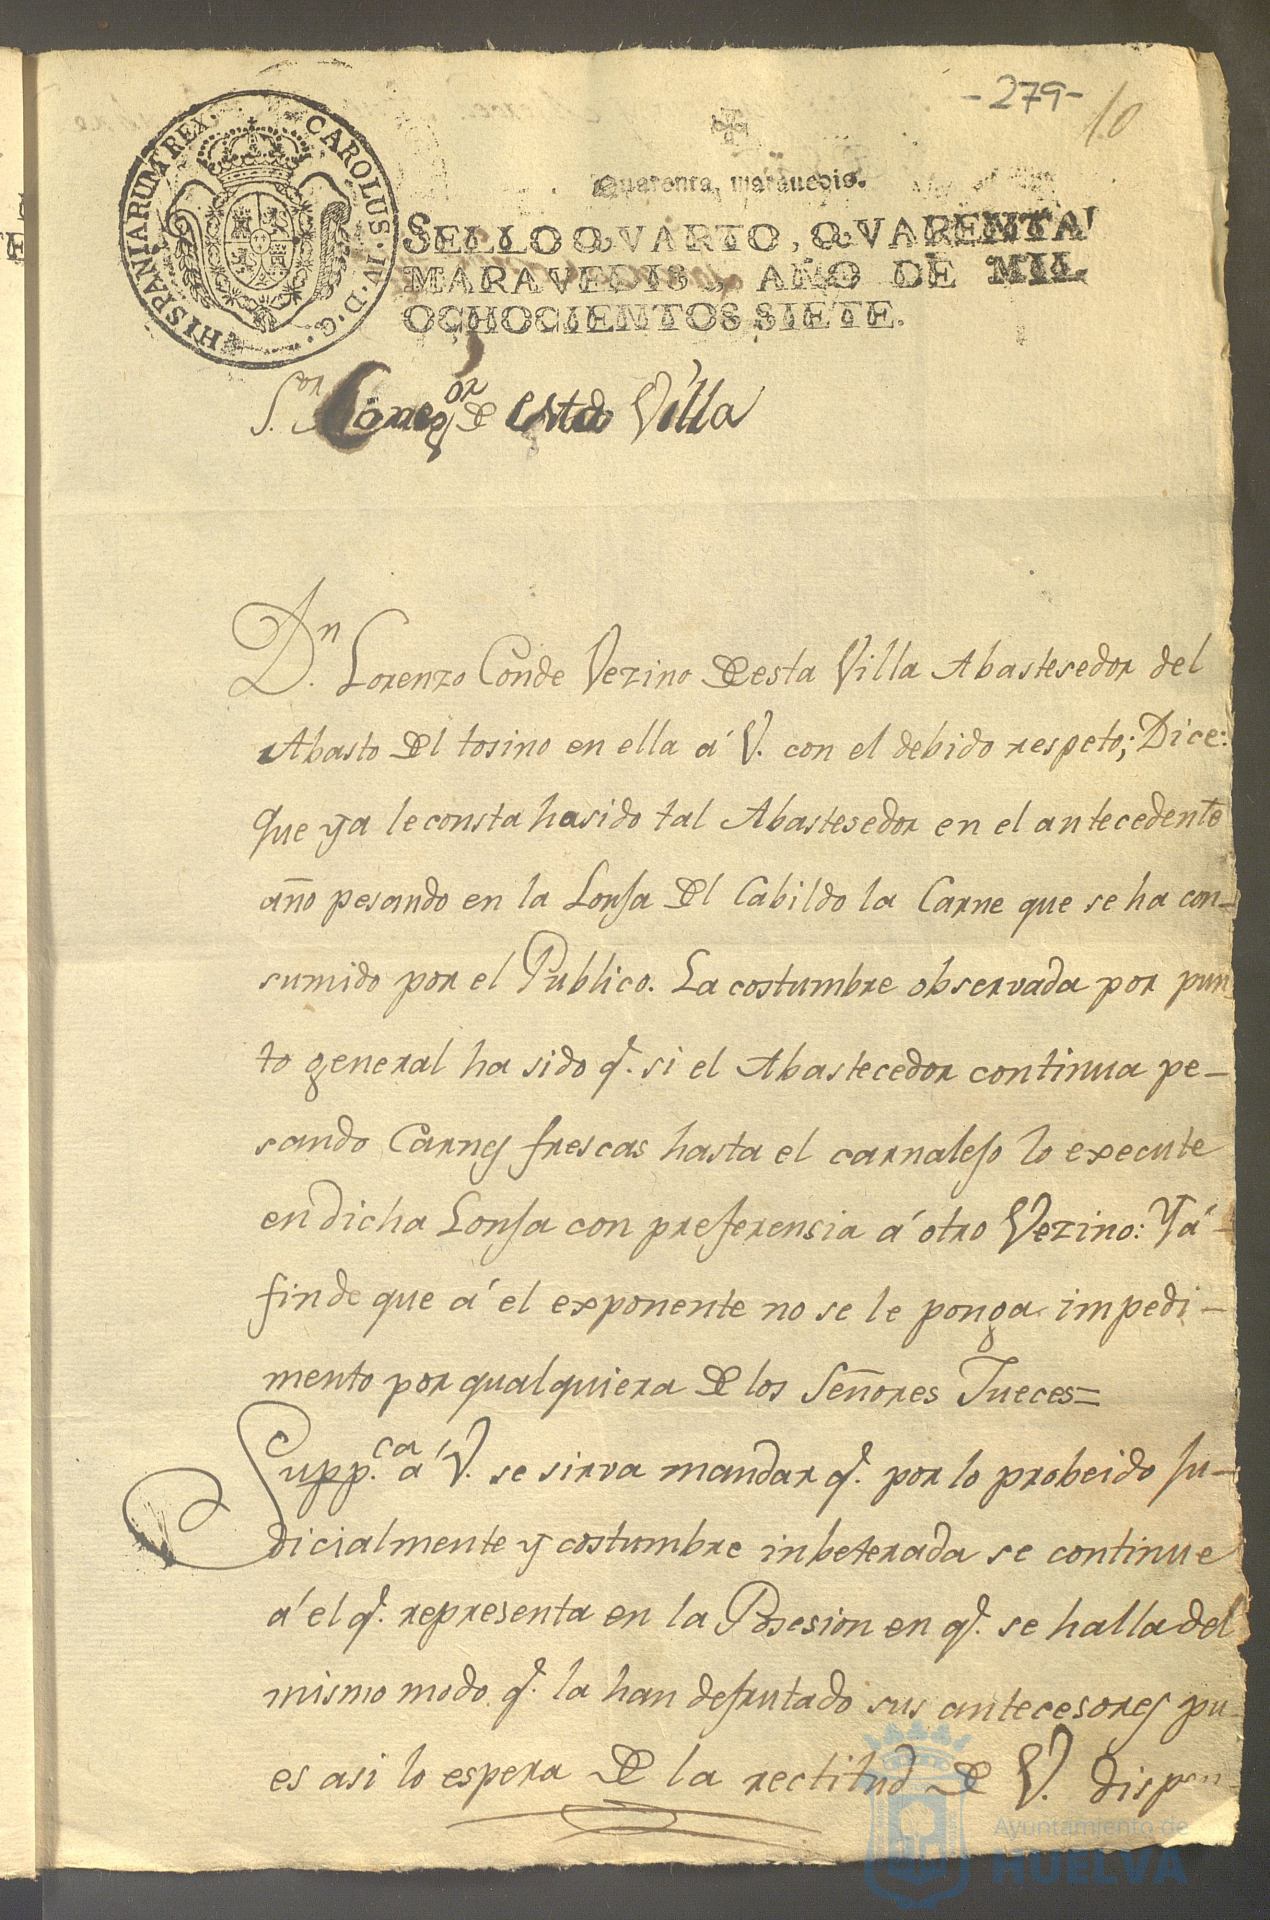 -279- 10
HISPANIARUM REX. CAROLUS. IV. D. G.
Quarenta, marauedis.
SELLO QVARTO, QVARENTA
MARAVEDIS, AÑO DE MIL
OCHOCIENTOS SIETE.
S.or Correg.or de esta Villa
D.n Lorenzo Conde Vezino de esta Villa Abastesedor del
Abasto del tosino en ella á V. con el debido respeto; Dice:
que ya le consta ha sido tal Abastesedor en el antecedente
año pesando en la Lonja del Cabildo la Carne que se ha con-
sumido por el Publico. La costumbre observada por pun
to general ha sido q.e si el Abastecedor continua pe-
sando Carnes frescas hasta el carnalejo lo execute
en dicha Lonja con preferensia á otro Vezino: Y á
fin de que á el exponente no se le ponga impedi-
mento por qualquiera de los Señores Jueces=
Supp.ca á V. se sirva mandar q.e por lo probeido Ju-
dicialmente y costumbre inbeterada se continue
á el q.e representa en la Posesion en q.e se halla del
mismo modo q.e la han desfrutado sus antecesores pu-
es asi lo espera de la rectitud de V. dispen-
Ayuntamiento de
HUELVA